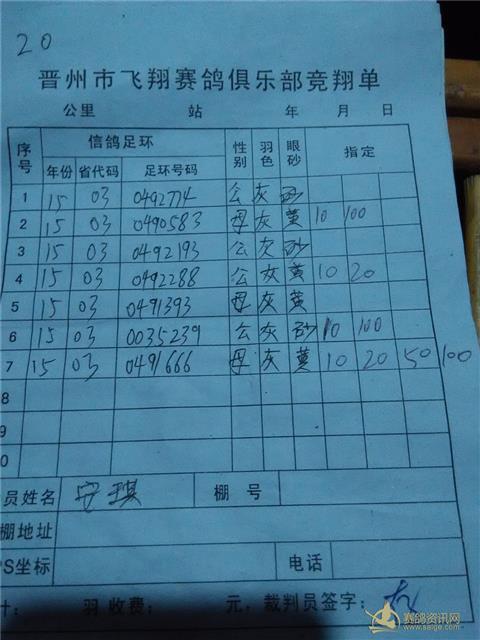 20
晋州市飞翔赛鸽俱乐部竞翔单
公里 站 年 月 日
序号 信鸽足环 性别 羽色 眼砂 指定
年份 省代码 足环号码
1 15 03 0492774 公 灰 砂
2 15 03 0490583 母 灰 黄 10 100
3 15 03 0492193 公 灰 砂
4 15 03 0492288 公 灰 黄 10 20
5 15 03 0491393 母 灰 黄
6 15 03 0035239 公 灰 砂 10 100
7 15 03 0491666 母 灰 黄 10 20 50 100
8
9
0
员姓名 安琪 棚号
棚地址
PS坐标 电话
计: 羽 收费: 元, 裁判员签字:
赛鸽资讯网
www.saige.com